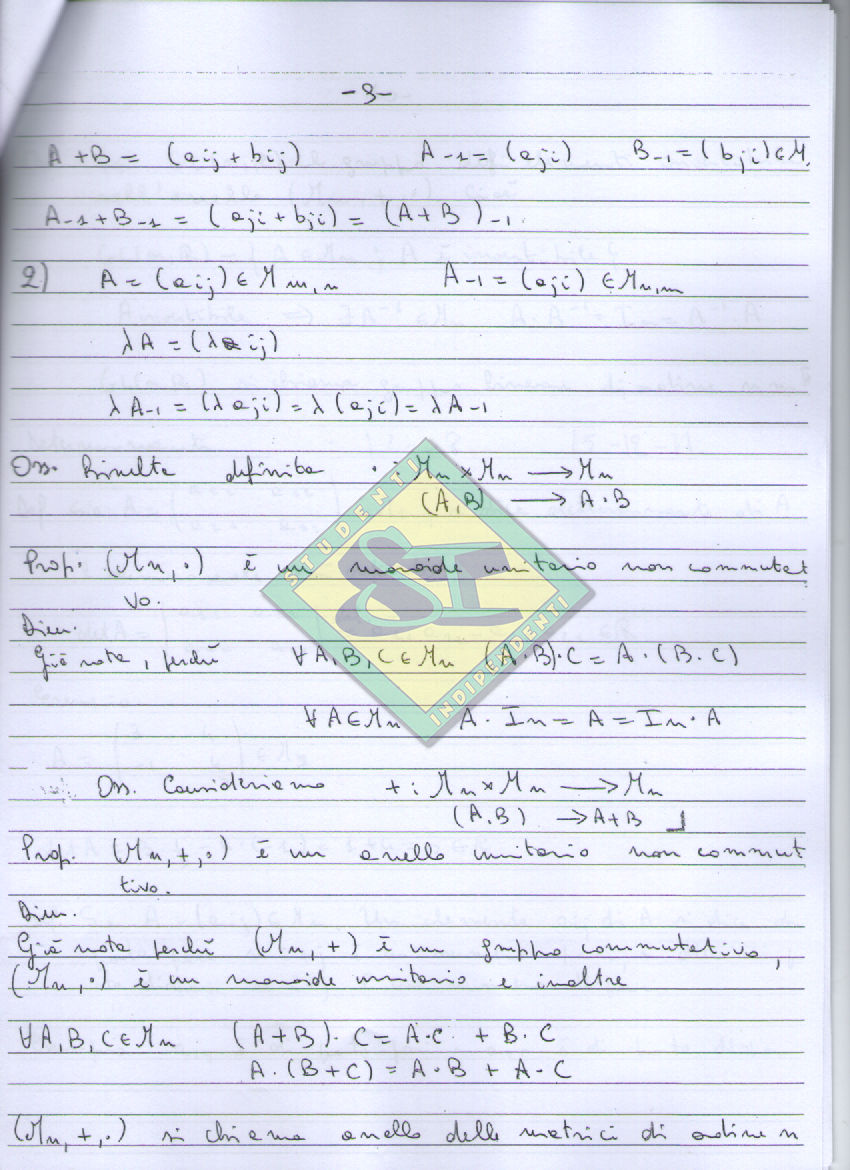 -3-
A+B = (aij + bij) A-1 = (aji) B-1 = (bji) ∈ M
A-1 + B-1 = (aji + bji) = (A+B)-1
2) A = (aij) ∈ Mm,n A-1 = (aji) ∈ Mn,m
λA = (λaij)
λA-1 = (λaji) = λ(aji) = λA-1
Oss. Risulta definita · : Mn × Mn → Mn
(A,B) → A·B
Prop: (Mn, ·) è un monoide unitario non commutat
vo.
Dim.
Già nota, perchè ∀A,B,C ∈ Mn (A·B)·C = A·(B·C)
∀A ∈ Mn A·In = A = In·A
Oss. Consideriamo + : Mn × Mn → Mn
(A,B) → A+B ⌋
Prop. (Mn,+,·) è un anello unitario non commut
tivo.
Dim.
Già nota perchè (Mn,+) è un gruppo commutativo,
(Mn,·) è un monoide unitario e inoltre
∀A,B,C ∈ Mn (A+B)·C = A·C + B·C
A·(B+C) = A·B + A·C
(Mn,+,·) si chiama anello delle matrici di ordine n
STUDENTI
SI
INDIPENDENTI